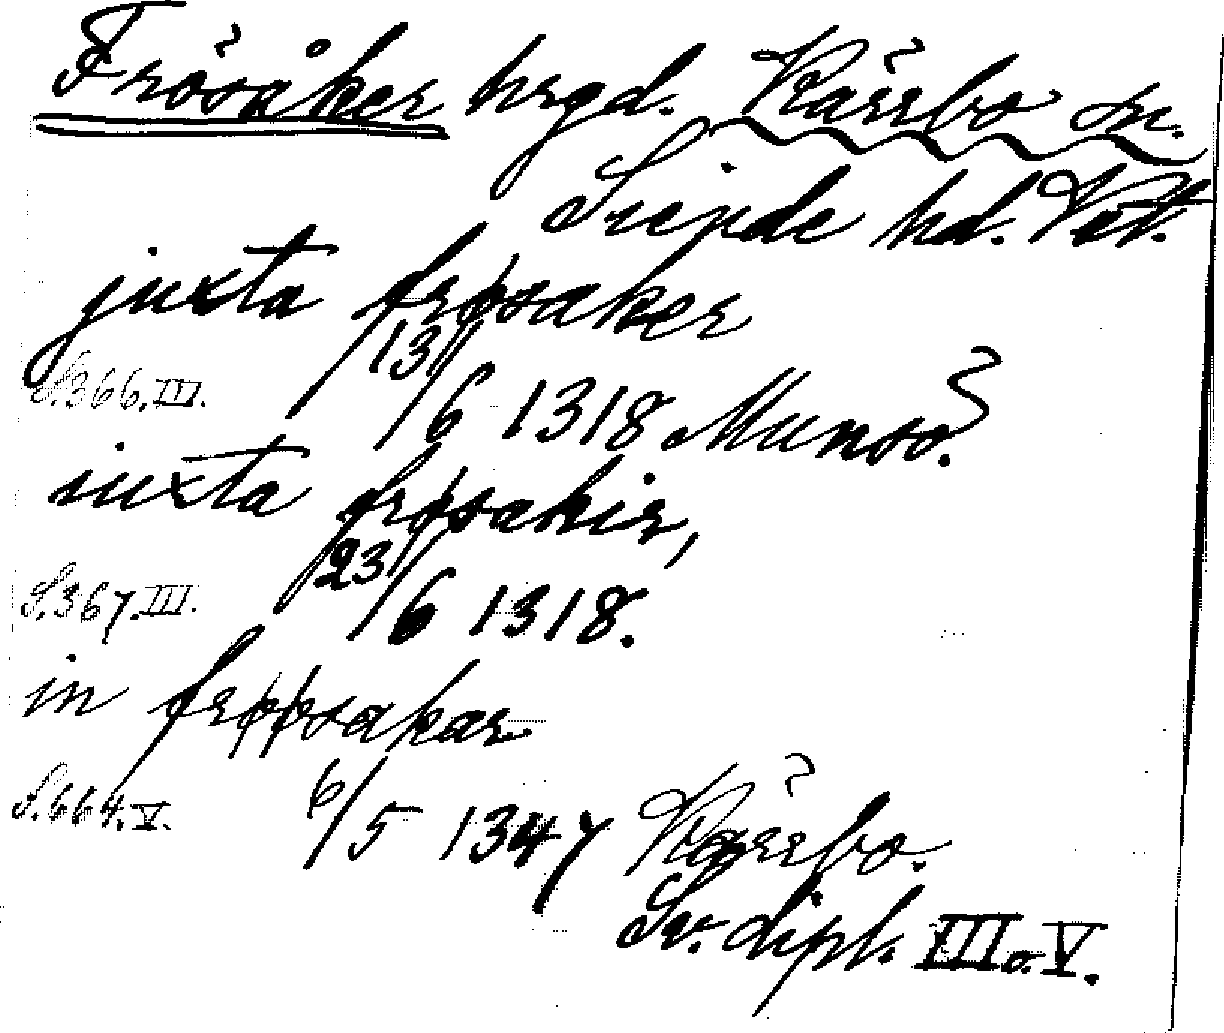 Frösåker hrgd. Kärrbo sn.
Siende hd. Vstl.
juxta frøsaker
S.366.III. 13/6 1318 Munsö.
iuxta frøsakir,
S.367.III. 23/6 1318.
in frøøsakar
S.664.V. 6/5 1347 Kärrbo.
Sv. dipl. III o. V.